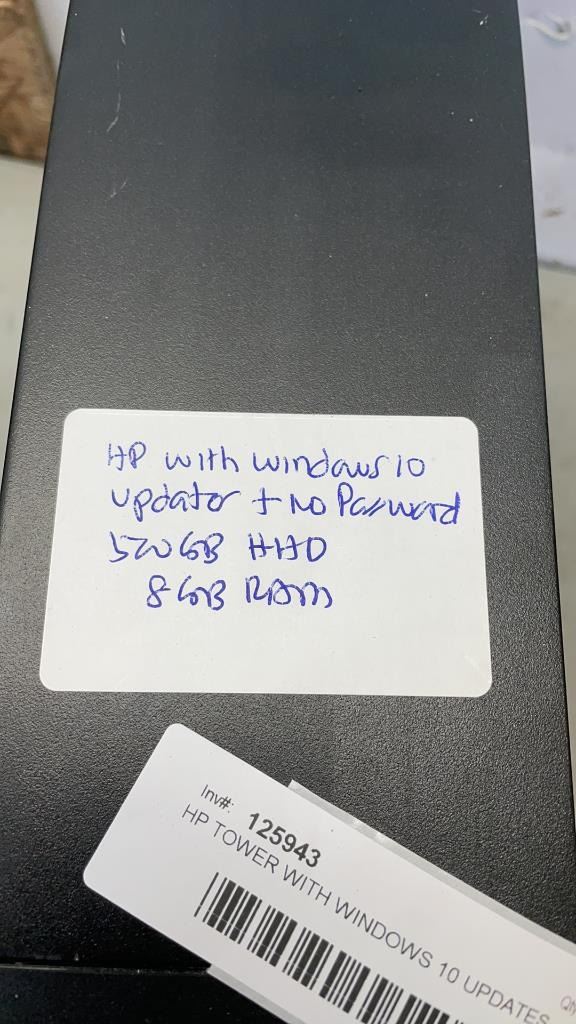 HP with windows 10
updates + No Password
500GB HDD
8GB RAM
Inv#: 125943
HP TOWER WITH WINDOWS 10 UPDATES
Qty